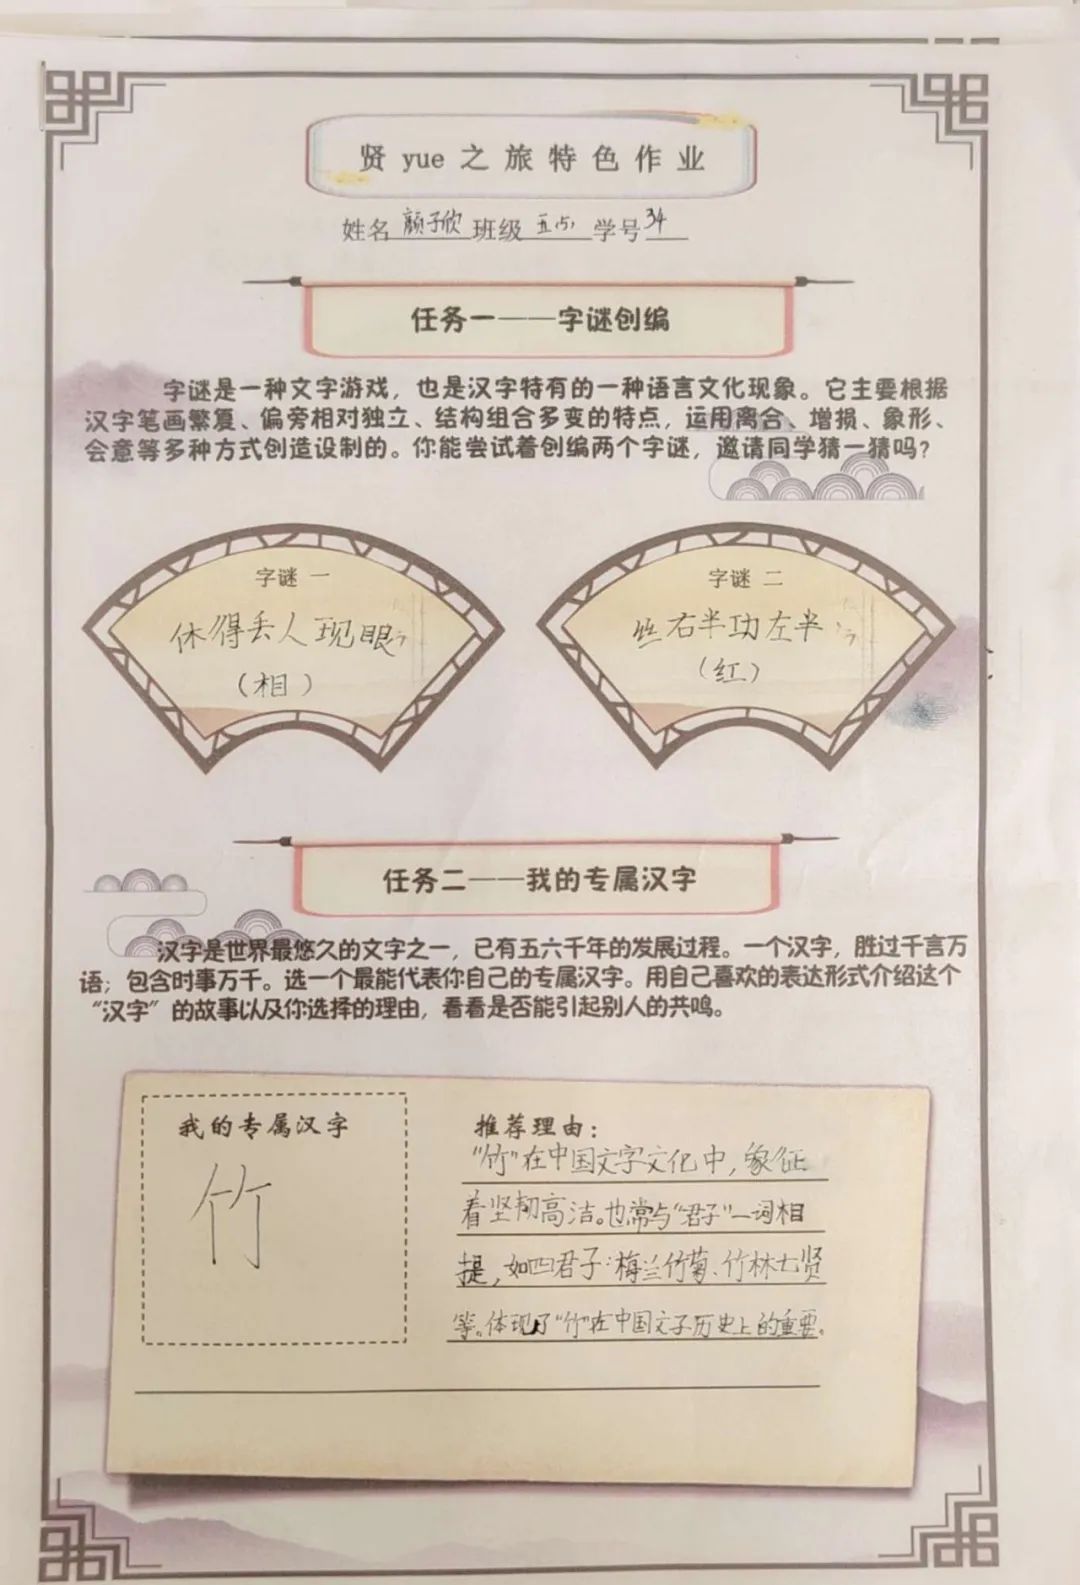 贤 yue 之旅特色作业
姓名 颜子欣 班级 五(5) 学号 34
任务一——字谜创编
字谜是一种文字游戏，也是汉字特有的一种语言文化现象。它主要根据
汉字笔画繁复、偏旁相对独立、结构组合多变的特点，运用离合、增损、象形、
会意等多种方式创造设制的。你能尝试着创编两个字谜，邀请同学猜一猜吗？
字谜 一
休得丢人现眼
（相）
字谜 二
丝右半功左半
（红）
任务二——我的专属汉字
汉字是世界最悠久的文字之一，已有五六千年的发展过程。一个汉字，胜过千言万
语；包含时事万千。选一个最能代表你自己的专属汉字。用自己喜欢的表达形式介绍这个
“汉字”的故事以及你选择的理由，看看是否能引起别人的共鸣。
我的专属汉字
竹
推荐理由：
“竹”在中国文字文化中，象征
着坚韧高洁。也常与“君子”一词相
提，如四君子：梅兰竹菊、竹林七贤
等。体现了“竹”在中国文子历史上的重要。